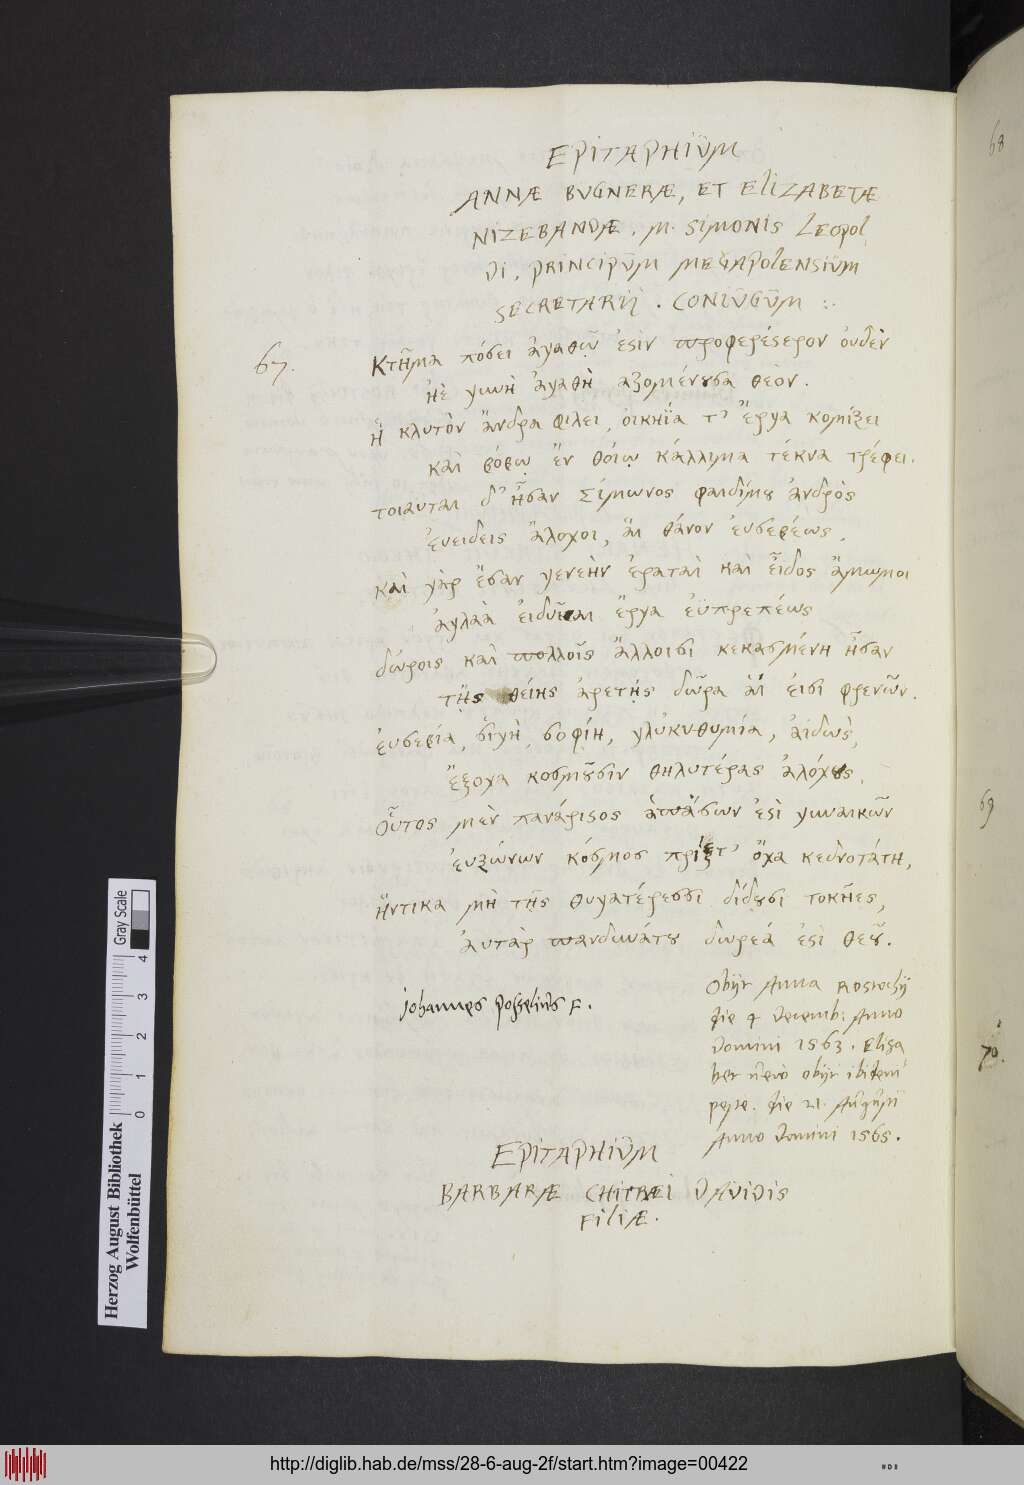 EPITAPHIUM
ANNÆ BUGNERÆ, ET ELIZABETÆ
NIZEBANDÆ. M. SIMONIS LEOPOL
DI, PRINCIPUM MEGAPOLENSIUM
SECRETARII. CONIUGUM :.
67.
Κτῆμα πόσει ἀγαθῷ ἐστὶν προφερέστερον οὐδὲν
ἠὲ γυνὴ ἀγαθὴ ἁζομένουσα θεόν.
ἣ κλυτὸν ἄνδρα φιλεῖ, οἰκήϊα τ' ἔργα κομίζει
καὶ φόβῳ ἐν θείῳ κάλλιμα τέκνα τρέφει.
τοιαυται δ' ἦσαν Σίμωνος φαιδίμου ἀνδρὸς
ἐυειδεις ἄλοχοι, ἃι θάνον ἐυσεβέως.
καὶ γὰρ ἔσαν γενεὴν ἐραταὶ καὶ εἶδος ἄμωμοι
ἀγλαὰ εἰδυῖαι ἔργα ἐϋπρεπέως
δώροις καὶ πολλοῖς ἄλλοισι κεκασμένη ἦσαν
τῆς θείης ἀρετῆς δῶρα ἃι εἰσι φρενῶν.
ἐυσεβία, σιγὴ, σοφίη, γλυκυθυμία, ἀιδὼς,
ἔξοχα κοσμοῦσιν θηλυτέρας ἀλόχους.
Οὗτος μὲν πανάριστος ἁπάσων ἐστὶ γυναικῶν
ἐυζώνων κόσμος ὄχα κεδνοτάτη,
ἥντικα μὴ τῆς θυγατέρεσσι δίδουσι τοκῆες,
ἀυτὰρ πανδυνάτου δωρεά ἐστὶ θεοῦ.
Johannes Posselius F.
Obijt Anna Rostochij
die 4 Decemb: Anno
Domini 1563. Elisa
bet vero obijt ibidem
peste. die 21. Augusti
Anno Domini 1565.
EPITAPHIUM
BARBARÆ CHITRÆI DAVIDIS
FILIÆ.
68
69
70.
Gray Scale
0 1 2 3 4
Herzog August Bibliothek
Wolfenbüttel
http://diglib.hab.de/mss/28-6-aug-2f/start.htm?image=00422